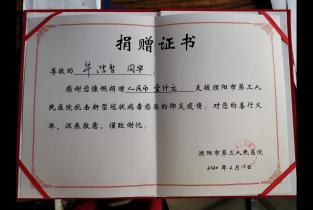 捐赠证书
尊敬的 牛浩哲 同学
感谢您慷慨捐赠 人民币 壹仟元 支援濮阳市第三人
民医院抗击新型冠状病毒感染的肺炎疫情。对您的善行义
举，深表敬意，谨致谢忱。
濮阳市第三人民医院
2020年2月15日